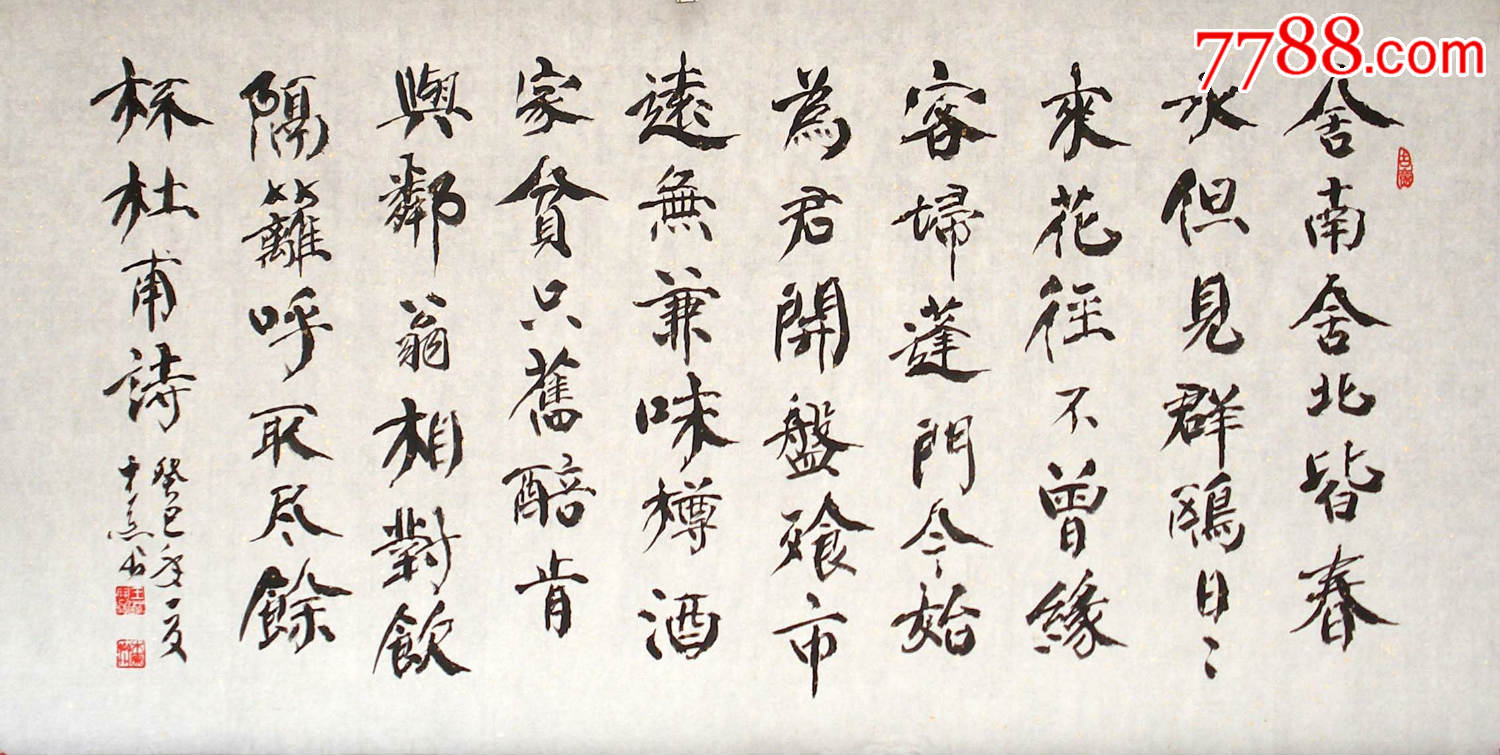 舍南舍北皆春
水但見群鷗日〻
來花徑不曾緣
客掃蓬門今始
為君開盤飧市
遠無兼味樽酒
家貧只舊醅肯
與鄰翁相對飲
隔籬呼取尽餘
杯杜甫詩
癸巳年夏
7788.com